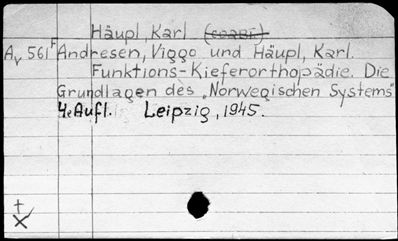 Häupl Karl
Av 561F Andresen, Viggo und Häupl, Karl.
Funktions-Kieferorthopädie. Die
Grundlagen des „Norwegischen Systems"
4. Aufl. Leipzig, 1945.